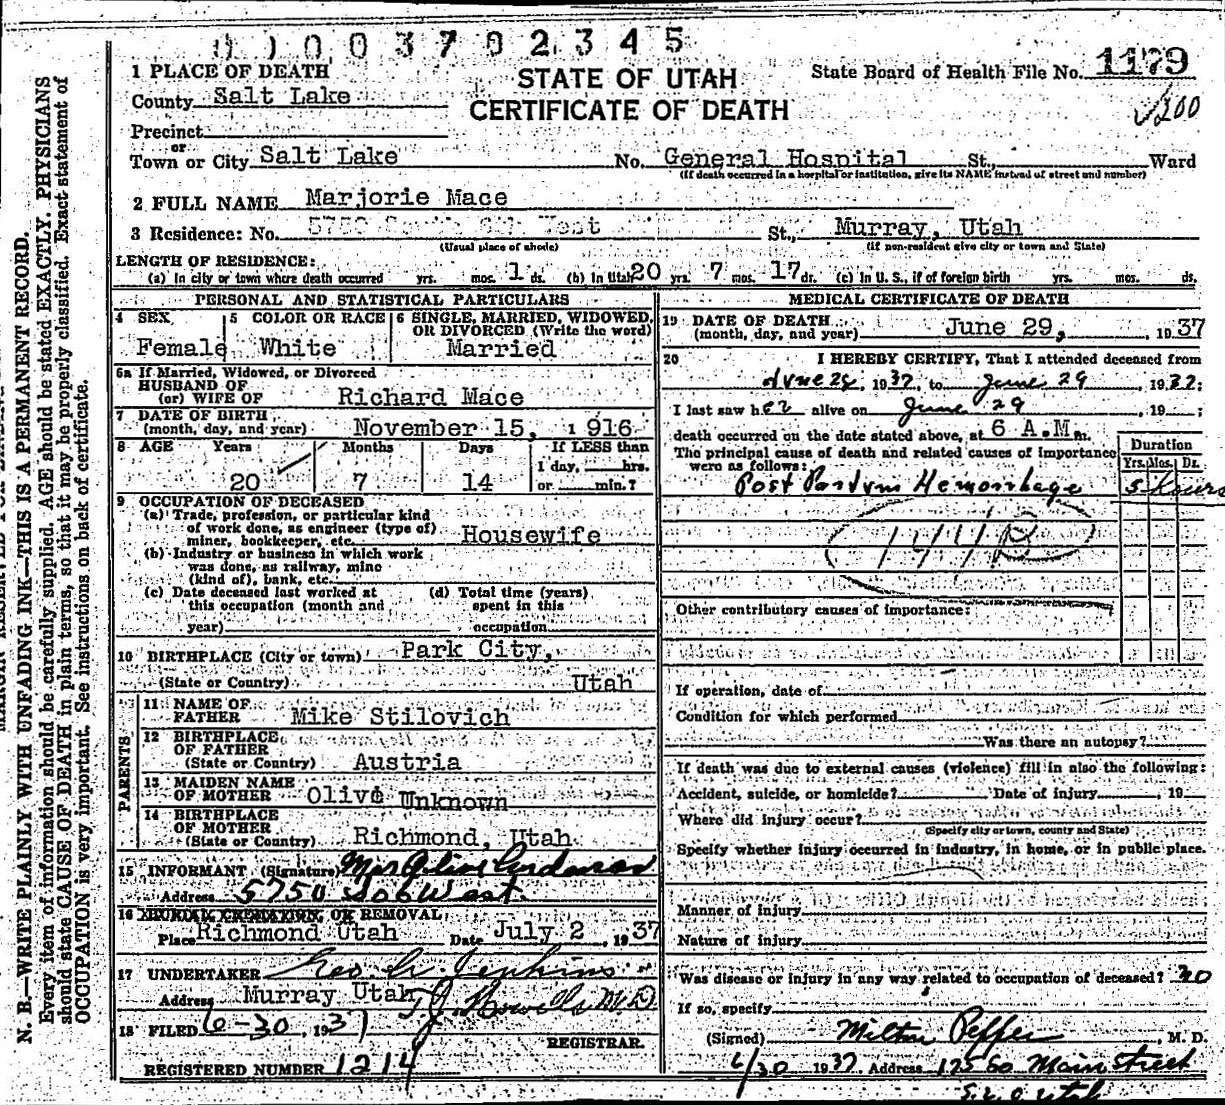 0 1 0 0 3 7 0 2 3 4 5
1 PLACE OF DEATH
County Salt Lake
STATE OF UTAH
CERTIFICATE OF DEATH
State Board of Health File No. 1179
200
Precinct
or
Town or City Salt Lake No. General Hospital St., Ward
(If death occurred in a hospital or institution, give its NAME instead of street and number)
2 FULL NAME Marjorie Mace
3 Residence: No. 5750 South 6th West St., Murray, Utah
(Usual place of abode) (If non-resident give city or town and State)
LENGTH OF RESIDENCE:
(a) In city or town where death occurred yrs. mos. 1 ds. (b) In Utah 20 yrs. 7 mos. 17 ds. (c) In U. S., if of foreign birth yrs. mos. ds.
PERSONAL AND STATISTICAL PARTICULARS
4 SEX Female
5 COLOR OR RACE White
6 SINGLE, MARRIED, WIDOWED, OR DIVORCED (Write the word) Married
6a If Married, Widowed, or Divorced
HUSBAND OF
(or) WIFE OF Richard Mace
7 DATE OF BIRTH
(month, day, and year) November 15, 1916
8 AGE Years Months Days If LESS than
1 day, hrs.
20 7 14 or min.?
9 OCCUPATION OF DECEASED
(a) Trade, profession, or particular kind
of work done, as engineer (type of)
miner, bookkeeper, etc. Housewife
(b) Industry or business in which work
was done, as railway, mine
(kind of), bank, etc.
(c) Date deceased last worked at
this occupation (month and
year)
(d) Total time (years)
spent in this
occupation
10 BIRTHPLACE (City or town) Park City,
(State or Country) Utah
PARENTS
11 NAME OF
FATHER Mike Stilovich
12 BIRTHPLACE
OF FATHER
(State or Country) Austria
13 MAIDEN NAME
OF MOTHER Olive Unknown
14 BIRTHPLACE
OF MOTHER
(State or Country) Richmond, Utah
15 INFORMANT (Signature) Mrs Olive Anderson
Address 5750 So 6 West.
16 BURIAL, CREMATION, OR REMOVAL
Place Richmond Utah Date July 2, 1937
17 UNDERTAKER Geo W Jenkins
Address Murray Utah
T. J. Howells M.D.
18 FILED 6-30, 1937
REGISTRAR.
REGISTERED NUMBER 1214
MEDICAL CERTIFICATE OF DEATH
19 DATE OF DEATH
(month, day, and year) June 29, 1937
20 I HEREBY CERTIFY, That I attended deceased from
June 28, 1937, to June 29, 1937;
I last saw her alive on June 29, 19 ;
death occurred on the date stated above, at 6 A.M. m.
The principal cause of death and related causes of importance
were as follows:
Duration
Yrs. Mos. Ds.
Post Partum Hemorrhage 5 Hours
Other contributory causes of importance:
If operation, date of
Condition for which performed
Was there an autopsy?
If death was due to external causes (violence) fill in also the following:
Accident, suicide, or homicide? Date of injury , 19
Where did injury occur?
(Specify city or town, county and State)
Specify whether injury occurred in industry, in home, or in public place.
Manner of injury
Nature of injury
Was disease or injury in any way related to occupation of deceased? no
If so, specify
(Signed) Milton Pepper, M. D.
6/30 1937 Address 125 So Main Street
S.L.C. Utah
N. B.—WRITE PLAINLY WITH UNFADING INK—THIS IS A PERMANENT RECORD.
Every item of information should be carefully supplied. AGE should be stated EXACTLY. PHYSICIANS
should state CAUSE OF DEATH in plain terms, so that it may be properly classified. Exact statement of
OCCUPATION is very important. See instructions on back of certificate.